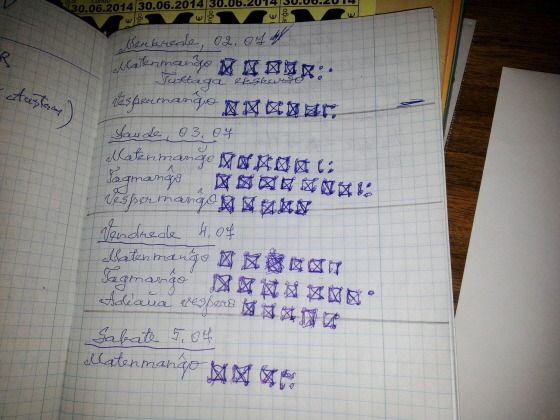 30.06.2014 30.06.2014 30.06.2014
Merkrede, 02.07
Matenmanĝo
Tuttaga ekskurso
Vespermanĝo
Ĵaŭde, 03.07
Matenmanĝo
Tagmanĝo
Vespermanĝo
Vendrede 4.07
Matenmanĝo
Tagmanĝo
Adiaŭa vespero
Sabate 5.07
Matenmanĝo